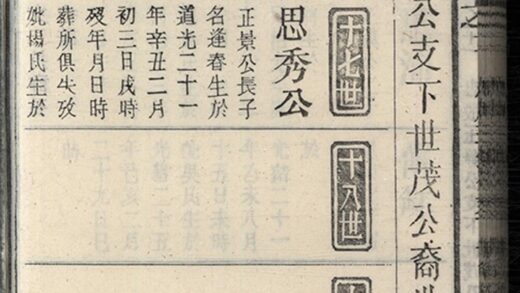 公支下世茂公裔世
十七世
思秀公
正景公長子
名逢春生於
道光二十一
年辛丑二月
初三日戌時
歿年月日時
葬所俱失攷
妣楊氏生於
十八世